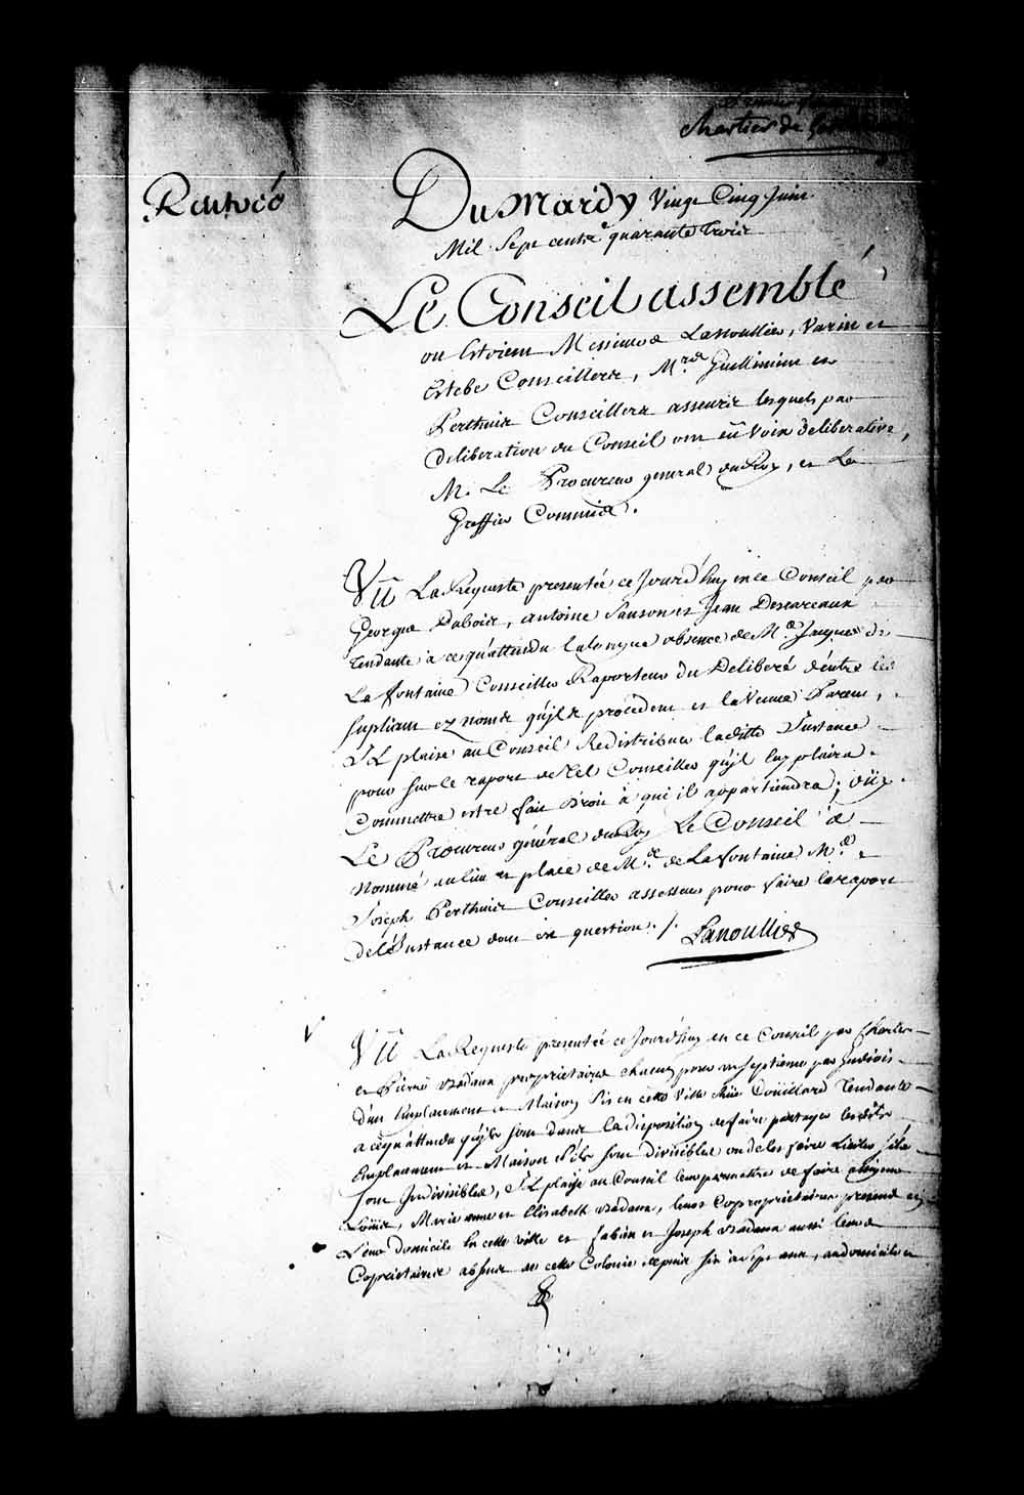 Chartier de
Renvoié
Du Mardy Vingt Cinq Juin
Mil Sept cents quarante trois
Le Conseil assemblé
ou Estoient Messieurs Lanoullier, Varin et
Estebe Conseillers, Mres Guillimin et
Perthuis Conseillers assesseurs lesquels par
deliberation du Conseil ont eû Voix deliberative,
M. Le Procureur general du Roy, et Le
Greffier Commis.
Vû La Requeste presentée ce Jourd'huy en ce Conseil par
George Dabois, antoine Sanson et Jean Descareaux
tendante a ce qu'attendu la longue absence de Me Jacques de
La fontaine Conseiller Raporteur du Deliberé d'entre les
supliants ez noms qu'jls procedent et la Veuve Parent,
JL plaise au Conseil Redistribuer laditte Jnstance
pour sur le raport de tel Conseiller qu'jl luy plaira
Commettre estre fait droit à qui il appartiendra; oüy
Le Procureur général du Roy Le Conseil a
nommé au lieu et place de Me de Lafontaine Me
Joseph Perthuis Conseiller assesseur pour faire le raport
de l'Jnstance dont est question ./. Lanoullier
Vû La Requeste presentée ce Jourd'huy en ce Conseil par Charles
et Pierre Badeau proprietaires chacun pour un septieme par Jndivis
d'un Emplacement et Maison sis en cette Ville Rüe Couillard tendante
a ce qu'attendu qu'jls sont dans la disposition de faire partager lesdits
Emplacement et Maison s'ils sont divisibles ou de les faire Liciter s'ils
sont Jndivisibles, JL plaise au Conseil leur permettre de faire assigner
Loüise, Marie anne et Elisabeth Badeau, leurs Coproprietaires presents
Leur domicile en cette ville et fabien et Joseph Badeau aussi leurs
Coprietaires absents de cette Colonie depuis six a sept ans, au domicile